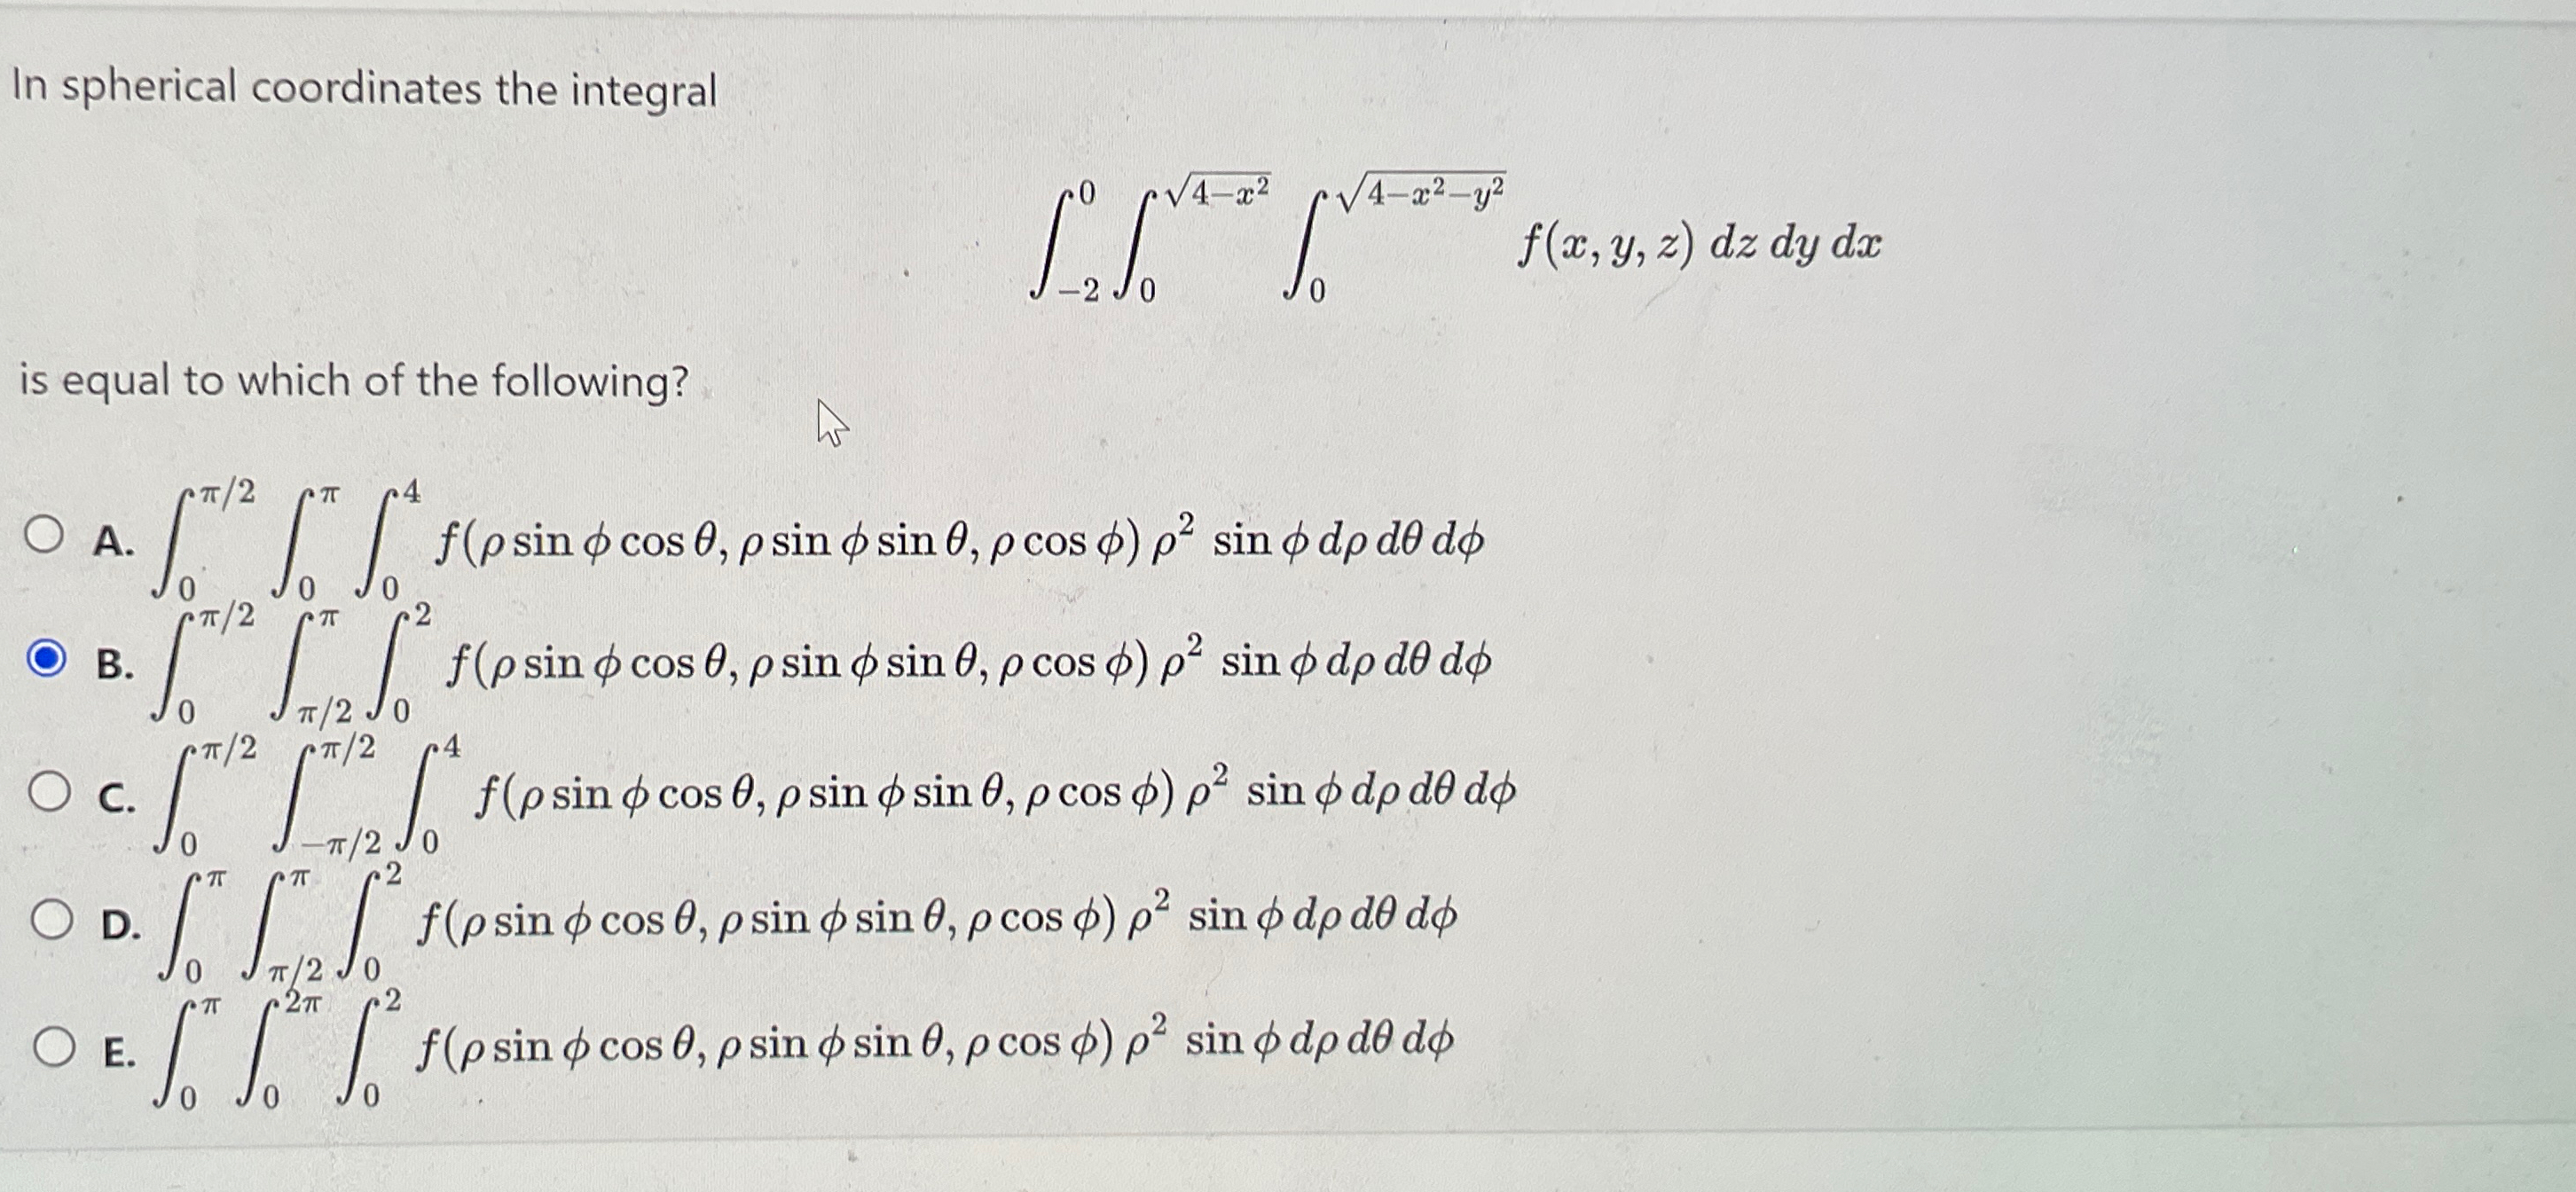 In spherical coordinates the integral
∫_{-2}^{0} ∫_{0}^{√(4−x²)} ∫_{0}^{√(4−x²−y²)} f(x, y, z) dz dy dx
is equal to which of the following?
A. ∫_{0}^{π/2} ∫_{0}^{π} ∫_{0}^{4} f(ρ sin ϕ cos θ, ρ sin ϕ sin θ, ρ cos ϕ) ρ² sin ϕ dρ dθ dϕ
B. ∫_{0}^{π/2} ∫_{π/2}^{π} ∫_{0}^{2} f(ρ sin ϕ cos θ, ρ sin ϕ sin θ, ρ cos ϕ) ρ² sin ϕ dρ dθ dϕ
C. ∫_{0}^{π/2} ∫_{−π/2}^{π/2} ∫_{0}^{4} f(ρ sin ϕ cos θ, ρ sin ϕ sin θ, ρ cos ϕ) ρ² sin ϕ dρ dθ dϕ
D. ∫_{0}^{π} ∫_{π/2}^{π} ∫_{0}^{2} f(ρ sin ϕ cos θ, ρ sin ϕ sin θ, ρ cos ϕ) ρ² sin ϕ dρ dθ dϕ
E. ∫_{0}^{π} ∫_{0}^{2π} ∫_{0}^{2} f(ρ sin ϕ cos θ, ρ sin ϕ sin θ, ρ cos ϕ) ρ² sin ϕ dρ dθ dϕ